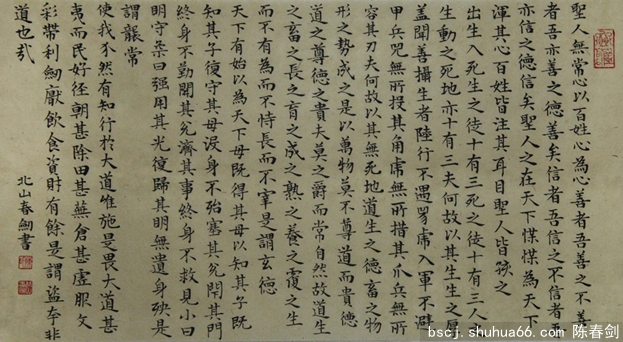 聖人無常心以百姓心為心善者吾善之不善
者吾亦善之德善矣信者吾信之不信者吾
亦信之德信矣聖人之在天下惵惵為天下
渾其心百姓皆注其耳目聖人皆孩之
出生入死生之徒十有三死之徒十有三人
生動之死地亦十有三夫何故以其生生之厚
蓋聞善攝生者陸行不遇兕虎入軍不避
甲兵兕無所投其角虎無所措其爪兵無所
容其刃夫何故以其無死地道生之德畜之物
形之勢成之是以萬物莫不尊道而貴德
道之尊德之貴夫莫之爵而常自然故道生
之畜之長之育之成之熟之養之覆之生
而不有為而不恃長而不宰是謂玄德
天下有始以為天下母既得其母以知其子既
知其子復守其母沒身不殆塞其兌閉其門
終身不勤開其兌濟其事終身不救見小曰
明守柔曰强用其光復歸其明無遺身殃是
謂襲常
使我介然有知行於大道唯施是畏大道甚
夷而民好徑朝甚除田甚蕪倉甚虛服文
彩帶利劍厭飲食資財有餘是謂盜夸非
道也哉
北山春劍書
bscj.shuhua66.com 陈春剑